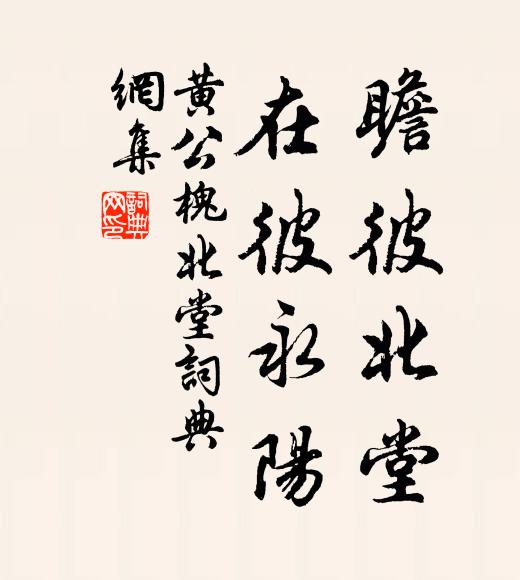 瞻彼北堂
在彼永陽
黃公槐北堂詞典
網集
詞典
网印